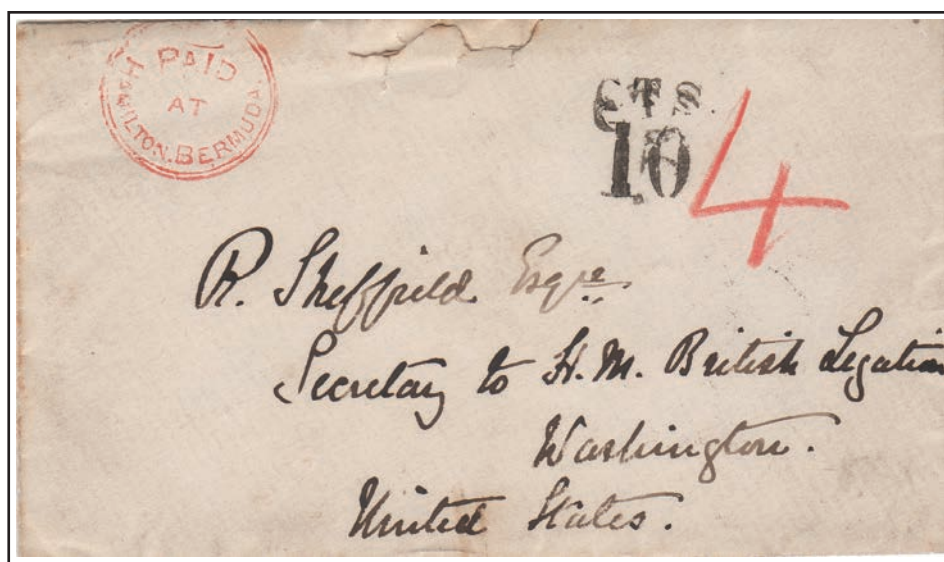 PAID
AT
HAMILTON. BERMUDA.
CTS.
10
4
R. Sheffield Esqre
Secretary to H.M. British Legation
Washington.
United States.